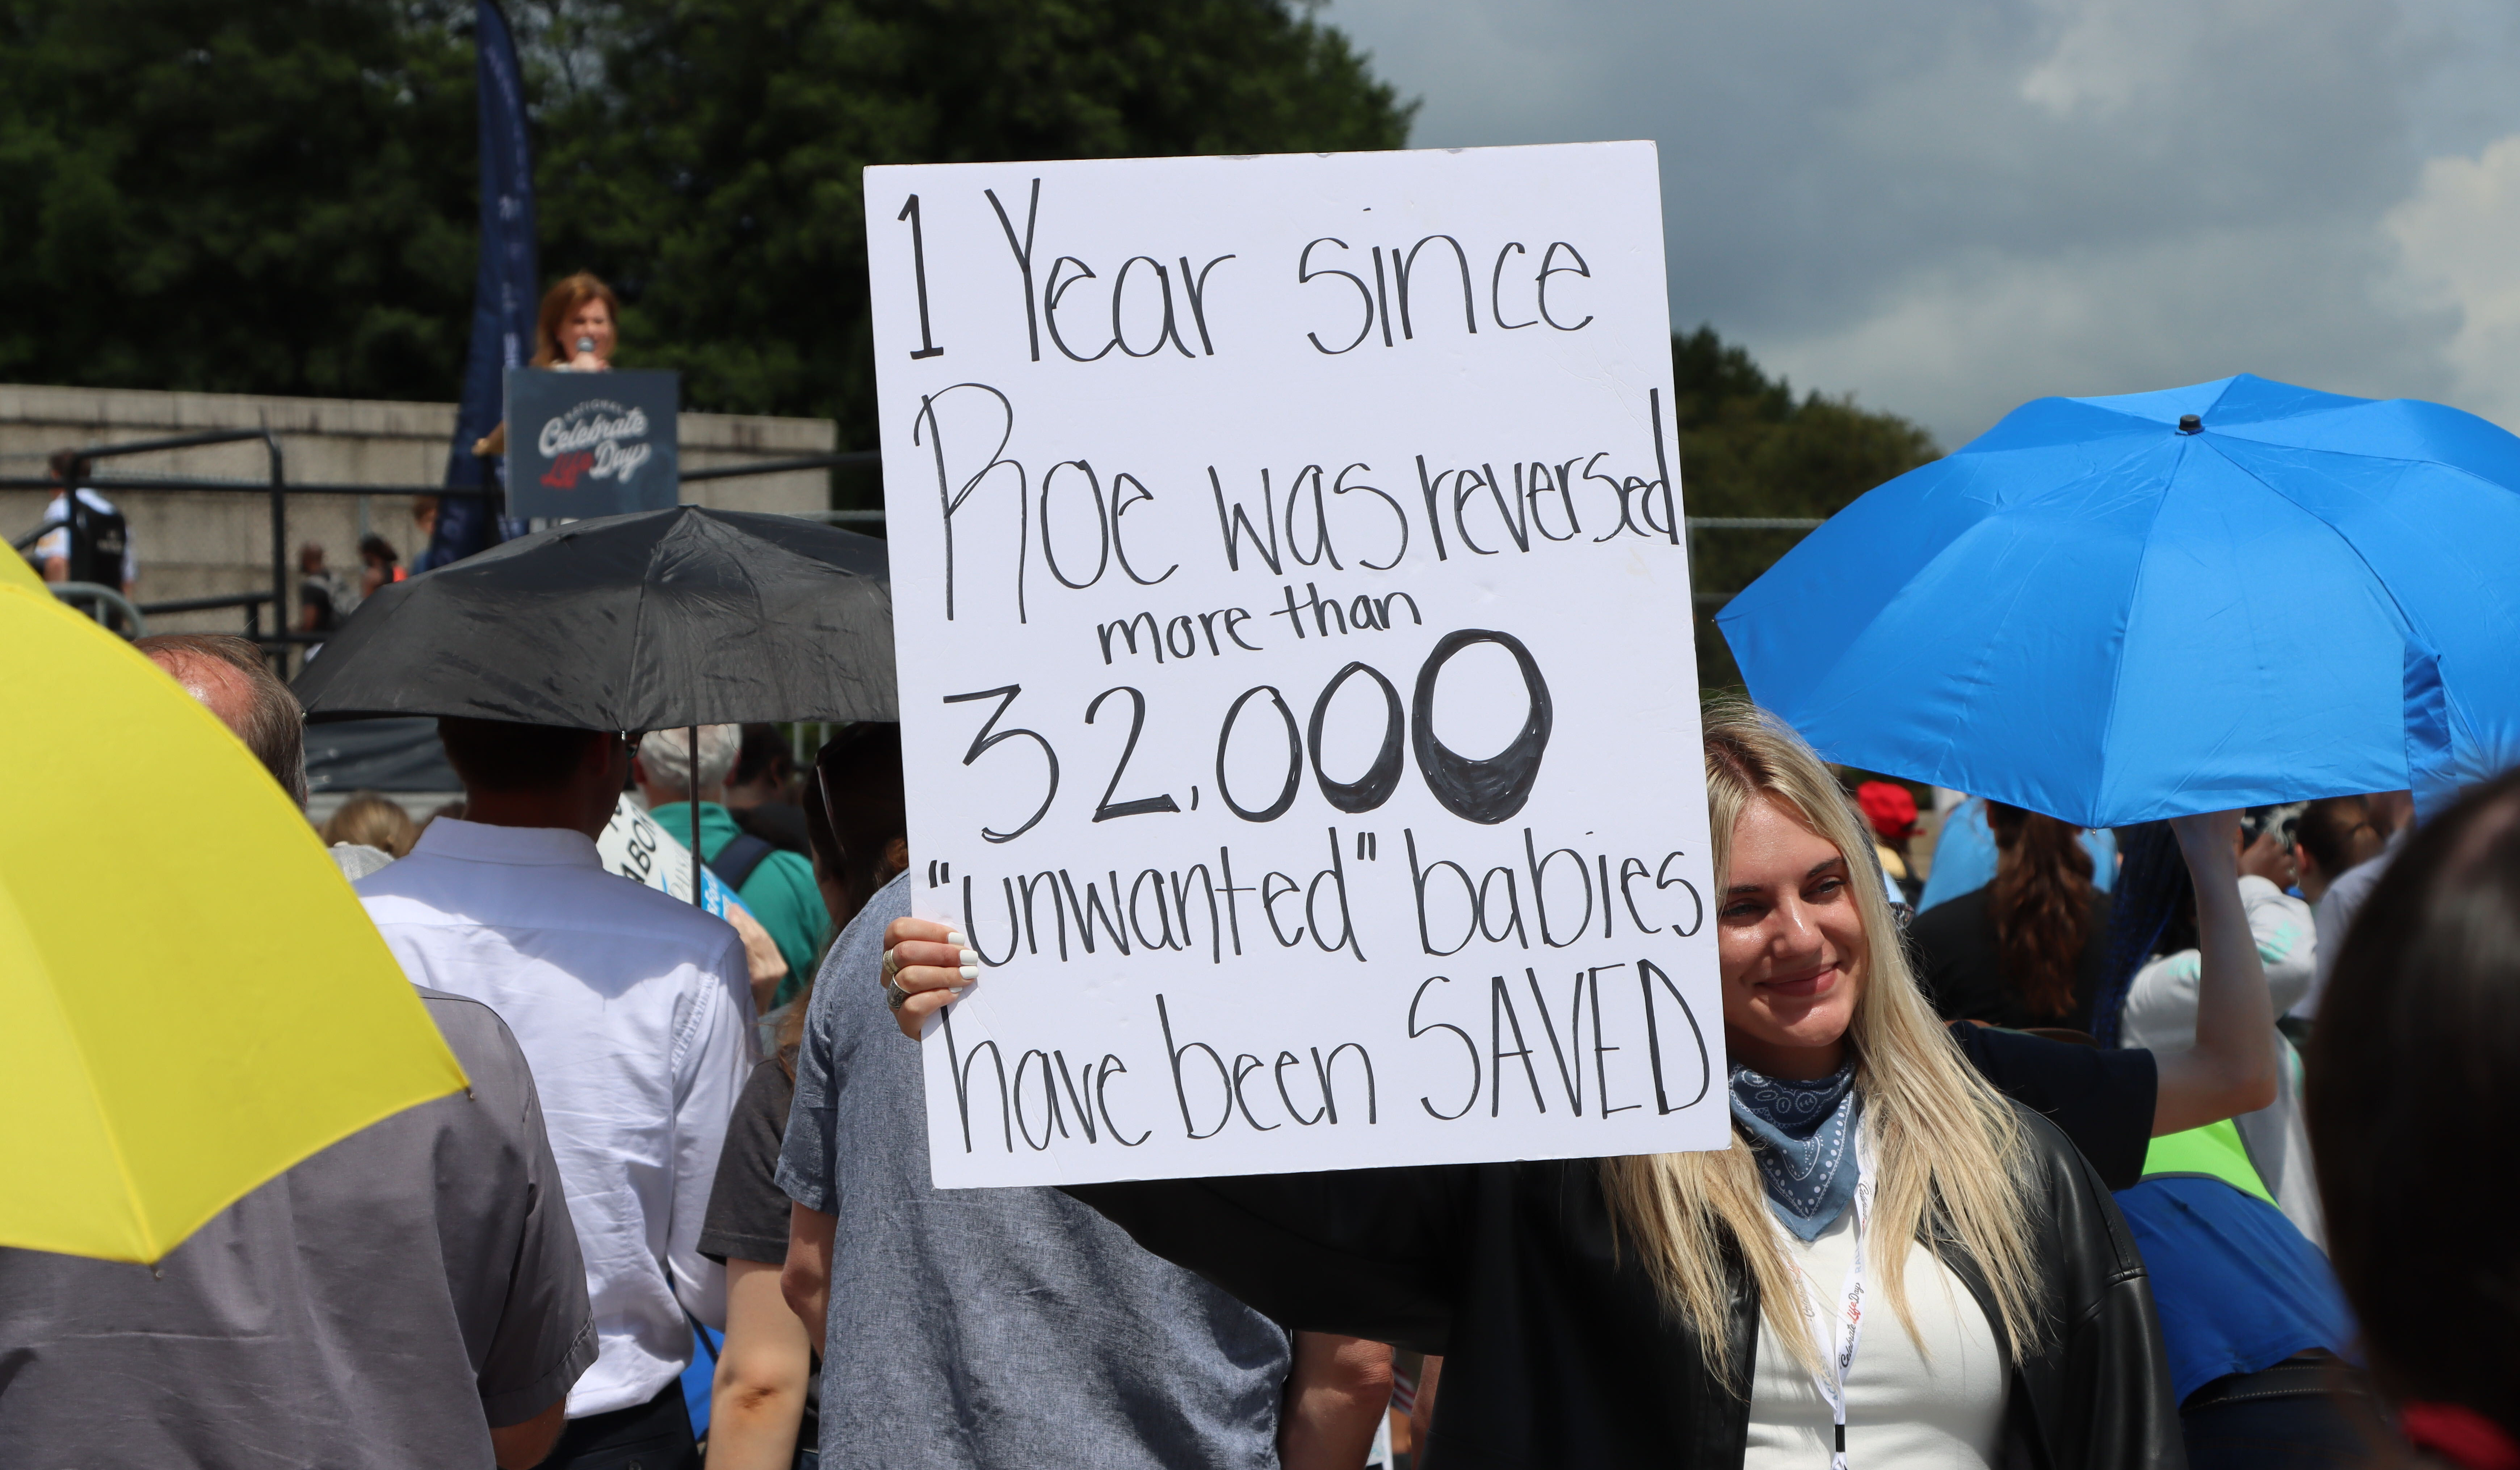 1 Year since
Roe was reversed
more than
32,000
"unwanted" babies
have been SAVED
NATIONAL
Celebrate
Life Day
ABOR
Celebrate Life Day